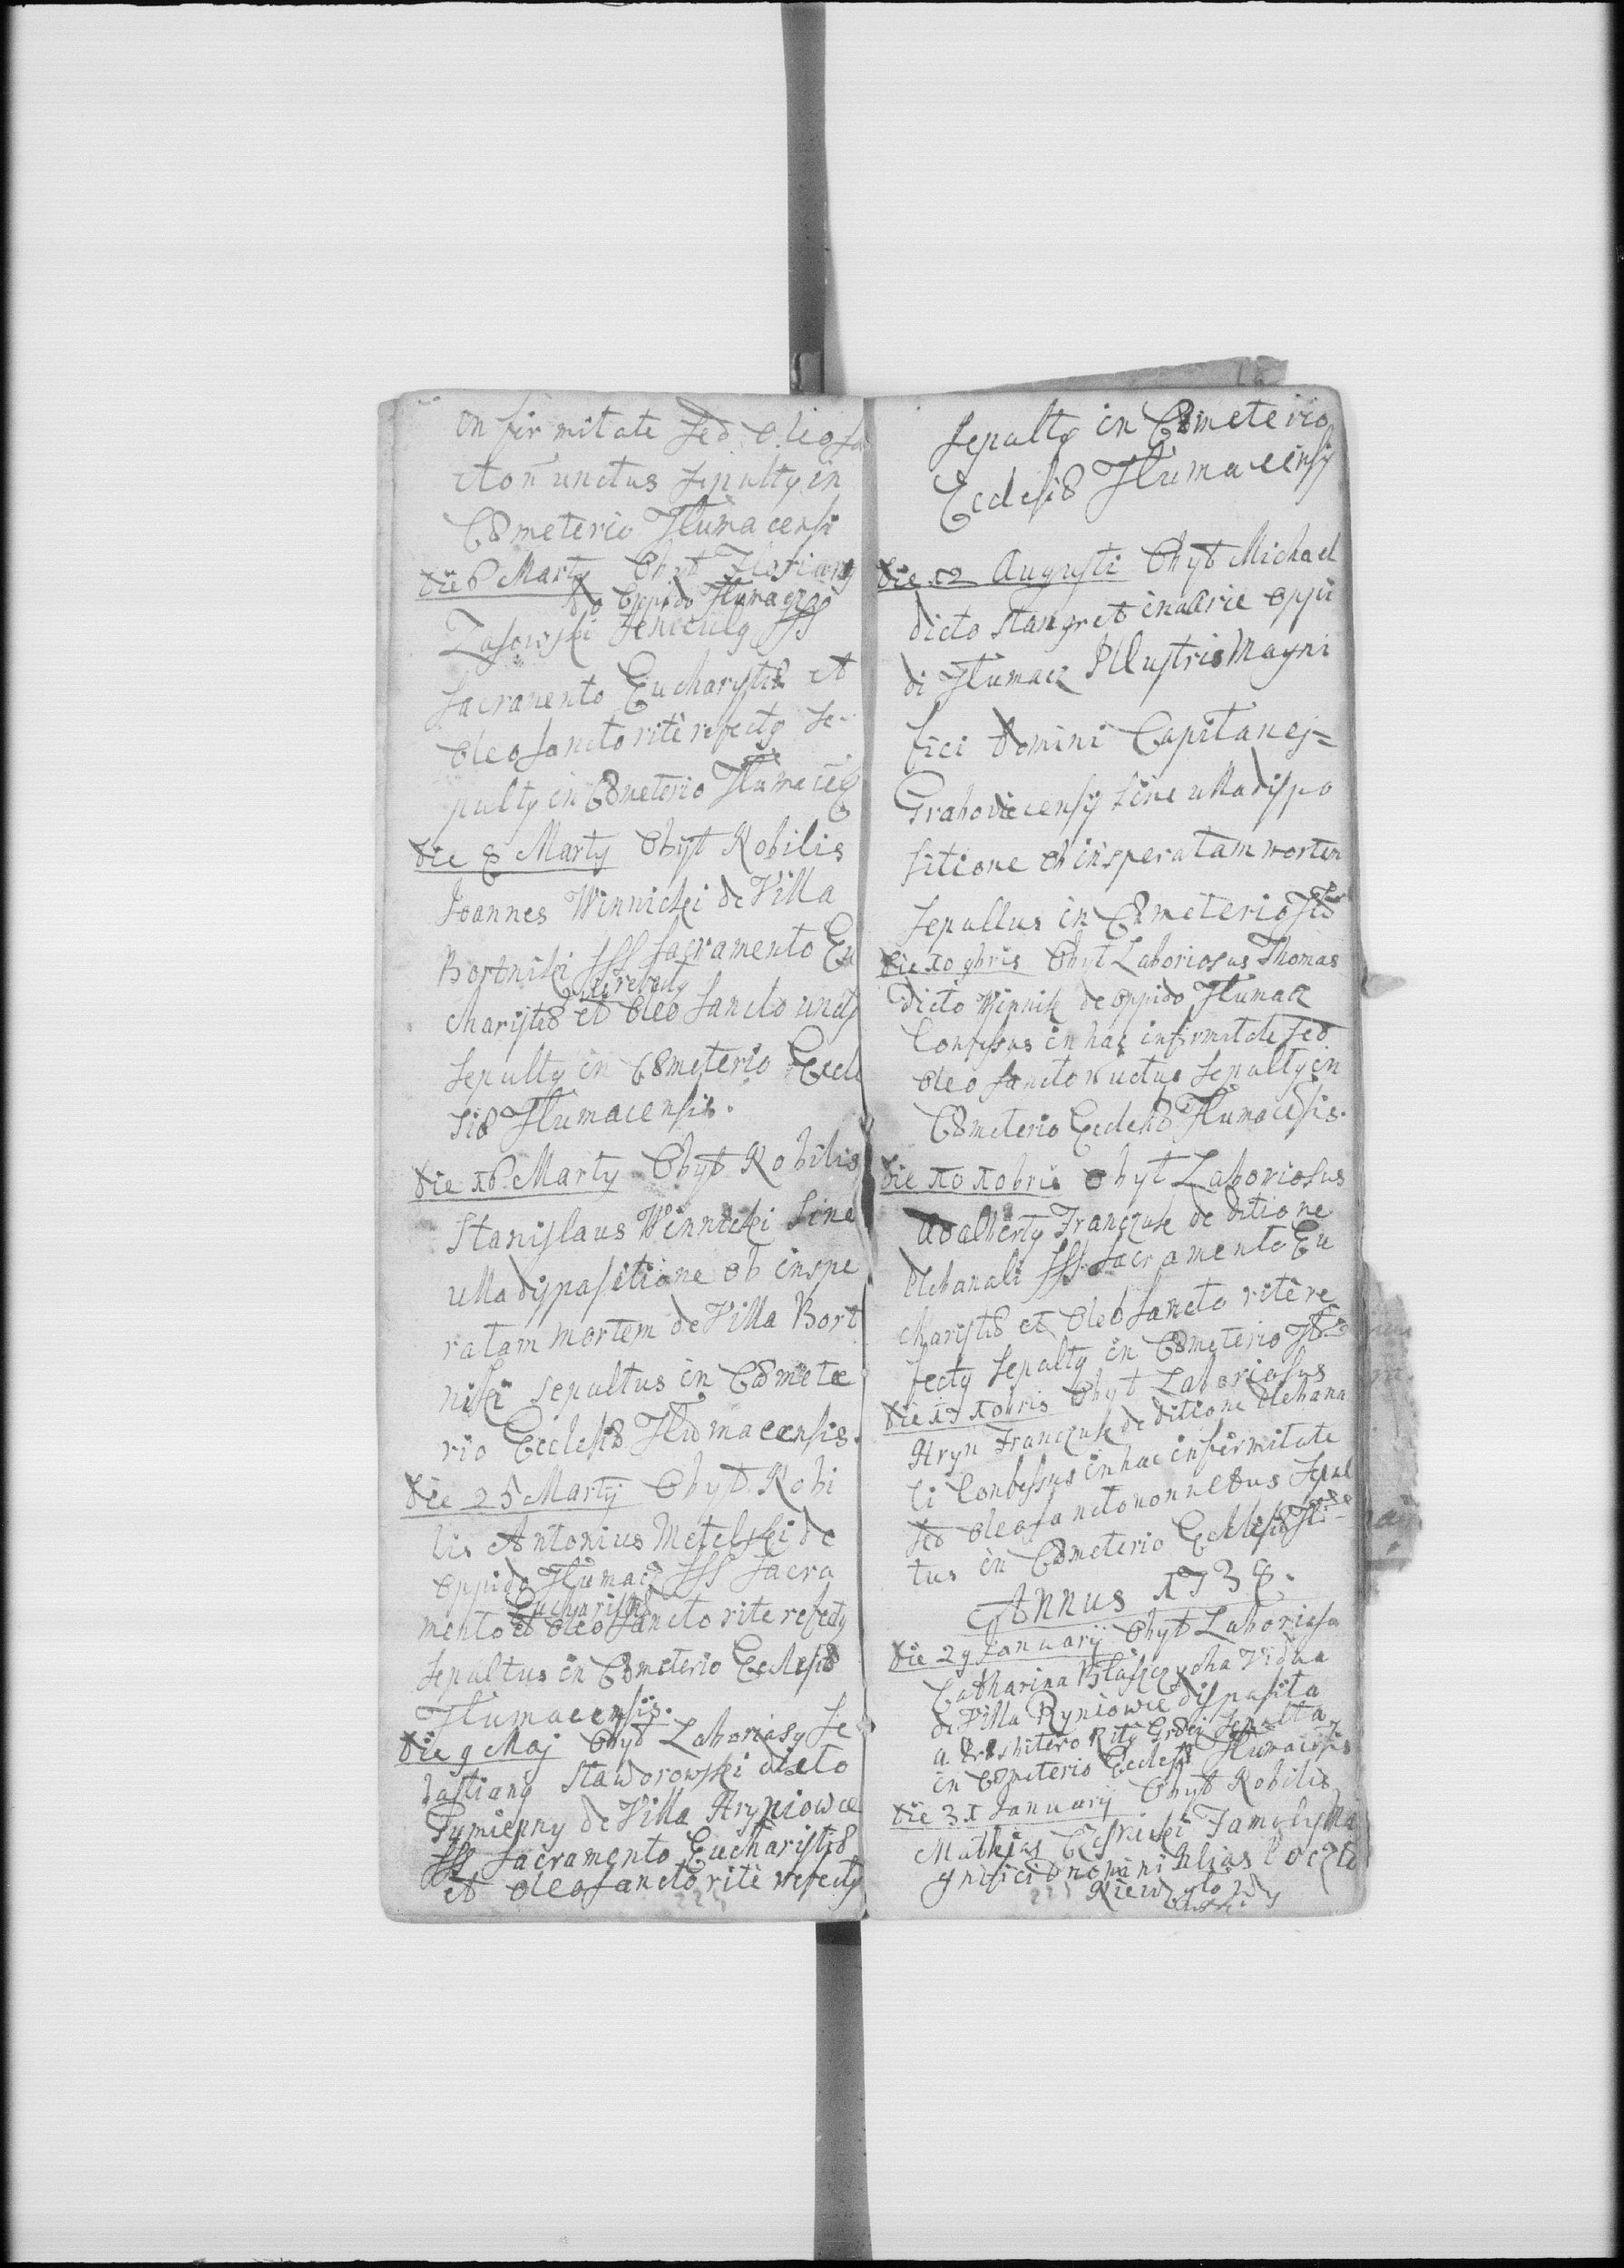 in fir mitate sed oleo sa
cto n̄ unctus sepultg in
Cœmeterio Tłumacensi
die 6 Martÿ Obÿt Floriang
de Oppido Tłumacz
Zasowski SSS
Sacramento Eucharystiæ et
oleo Sancto ritè refectg Se-
pultg in Cœmeterio
die 8 Martÿ Obÿt Nobilis
Joannes Winnicki de Villa
Bortniki SSS Sacramento Eu
refectg
charistiæ et oleo Sancto unctg
Sepultg in Cœmeterio Eccle
siæ Tłumacensis.
die 16 Martÿ Obÿt Nobilis
Stanislaus Winnicki Sine
ulla dispositione ob inspe
ratam mortem de Villa Bort
niki sepultus in Cœmete
rio Ecclesiæ Tłumacensis.
die 25 Martÿ Obÿt Nobi
lis Antonius Metelski de
oppido Tłumacz SSS Sacra
Eucharistiæ
mento et oleo Sancto rite refectg
Sepultus in Cœmeterio Ecclesiæ
Tłumacensis.
die 9 Maj Obÿt Laboriosg Se
bastiang Staworowski dicto
de Villa Hryniowce
SSS Sacramento Eucharistiæ
et oleo Sancto ritè refectg
Sepultg in Cœmeterio
Ecclesiæ Tłumacensis
die 12 Augusti Obÿt Michael
dicto Stangret in arce oppi
di Tłumacz Illustris Magni
fici Domini Capitanej=
Grabovecensis Sine ulla dispo
sitione ob insperatam mortem
Sepultus in Cœmeterio
die 10 9bris Obÿt Laboriosus Thomas
dicto Winnik de oppido Tłumacz
Confessus in hac infirmitate sed
oleo Sancto n̄ uctus Sepultg in
Cœmeterio Ecclesiæ Tłumacēsis.
die 10 Xobris Obÿt Laboriosus
Adalbertg Franczuk de ditione
Plebanali SSS Sacramento Eu
charistiæ et oleo Sancto ritè re
fectg Sepultg in Cœmeterio
die 17 Xobris Obÿt Laboriosus
Hryn Franczuk de ditione Plebana
li Confessus in hac infirmitate
sed oleo Sancto non nctus Sepul
tus in Cœmeterio Ecclesiæ
Annus 1738.
die 29 Januarij Obÿt Laboriosa
Catharina Błaszczycha Vidua
de Villa Ryniowce disposita
a Presbitero Ritg Græci Sepulta
in Cœmeterio Ecclesiæ Tłumacēsis
die 31 Januarij Obÿt Nobilis
Mathias Familg Ma
gnifici